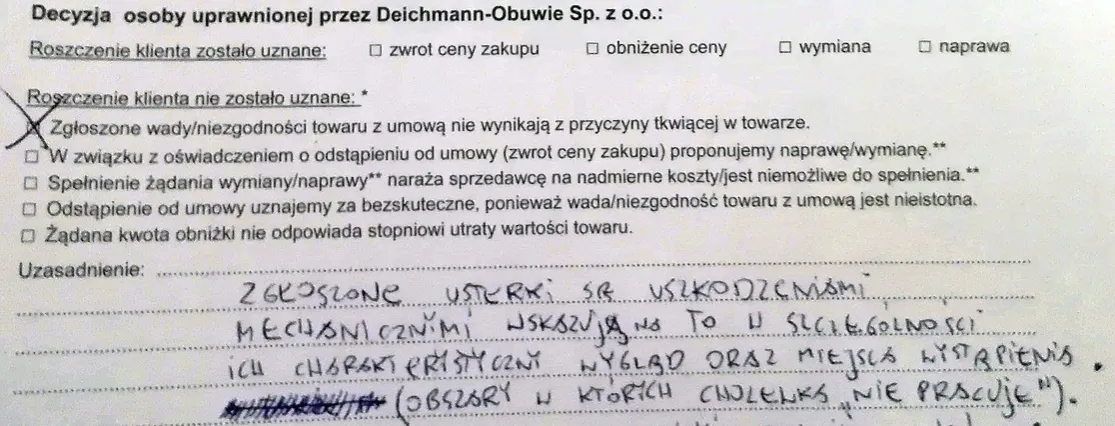 Decyzja osoby uprawnionej przez Deichmann-Obuwie Sp. z o.o.:
Roszczenie klienta zostało uznane: ☐ zwrot ceny zakupu ☐ obniżenie ceny ☐ wymiana ☐ naprawa
Roszczenie klienta nie zostało uznane: *
☒ Zgłoszone wady/niezgodności towaru z umową nie wynikają z przyczyny tkwiącej w towarze.
☐ W związku z oświadczeniem o odstąpieniu od umowy (zwrot ceny zakupu) proponujemy naprawę/wymianę.**
☐ Spełnienie żądania wymiany/naprawy** naraża sprzedawcę na nadmierne koszty/jest niemożliwe do spełnienia.**
☐ Odstąpienie od umowy uznajemy za bezskuteczne, ponieważ wada/niezgodność towaru z umową jest nieistotna.
☐ Żądana kwota obniżki nie odpowiada stopniowi utraty wartości towaru.
Uzasadnienie:
ZGŁOSZONE USTERKI SĄ USZKODZENIAMI
MECHANICZNYMI WSKAZUJĄ NA TO W SZCZEGÓLNOŚCI
ICH CHARAKTERYSTYCZNY WYGLĄD ORAZ MIEJSCA WYSTĄPIENIA
(OBSZARY W KTÓRYCH CHOLEWKA „NIE PRACUJE").